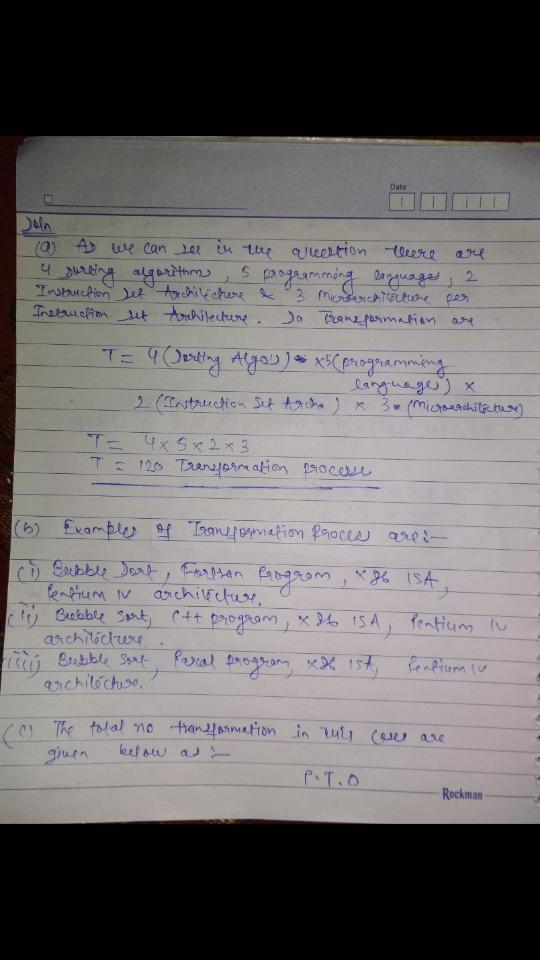 Date
Soln
(a) As we can see in the question there are
4 sorting algorithms, 5 programming languages, 2
Instruction set Architecture & 3 Microarchitecture per
Instruction set Architecture. So Transformation are
T = 4 (Sorting Algo's) x 5 (programming
languages) x
2 (Instruction Set Arche) x 3 (Microarchitecture)
T = 4 x 5 x 2 x 3
T = 120 Transformation process
(b) Examples of Transformation Process are:-
(i) Bubble Sort, Fortran Program, x86 ISA,
Pentium IV architecture.
(ii) Bubble sort, C++ program, x86 ISA, Pentium IV
architecture.
(iii) Bubble sort, Pascal program, x86 ISA, Pentium IV
architecture.
(c) The total no transformation in this case are
given below as :-
P.T.O
Rockman